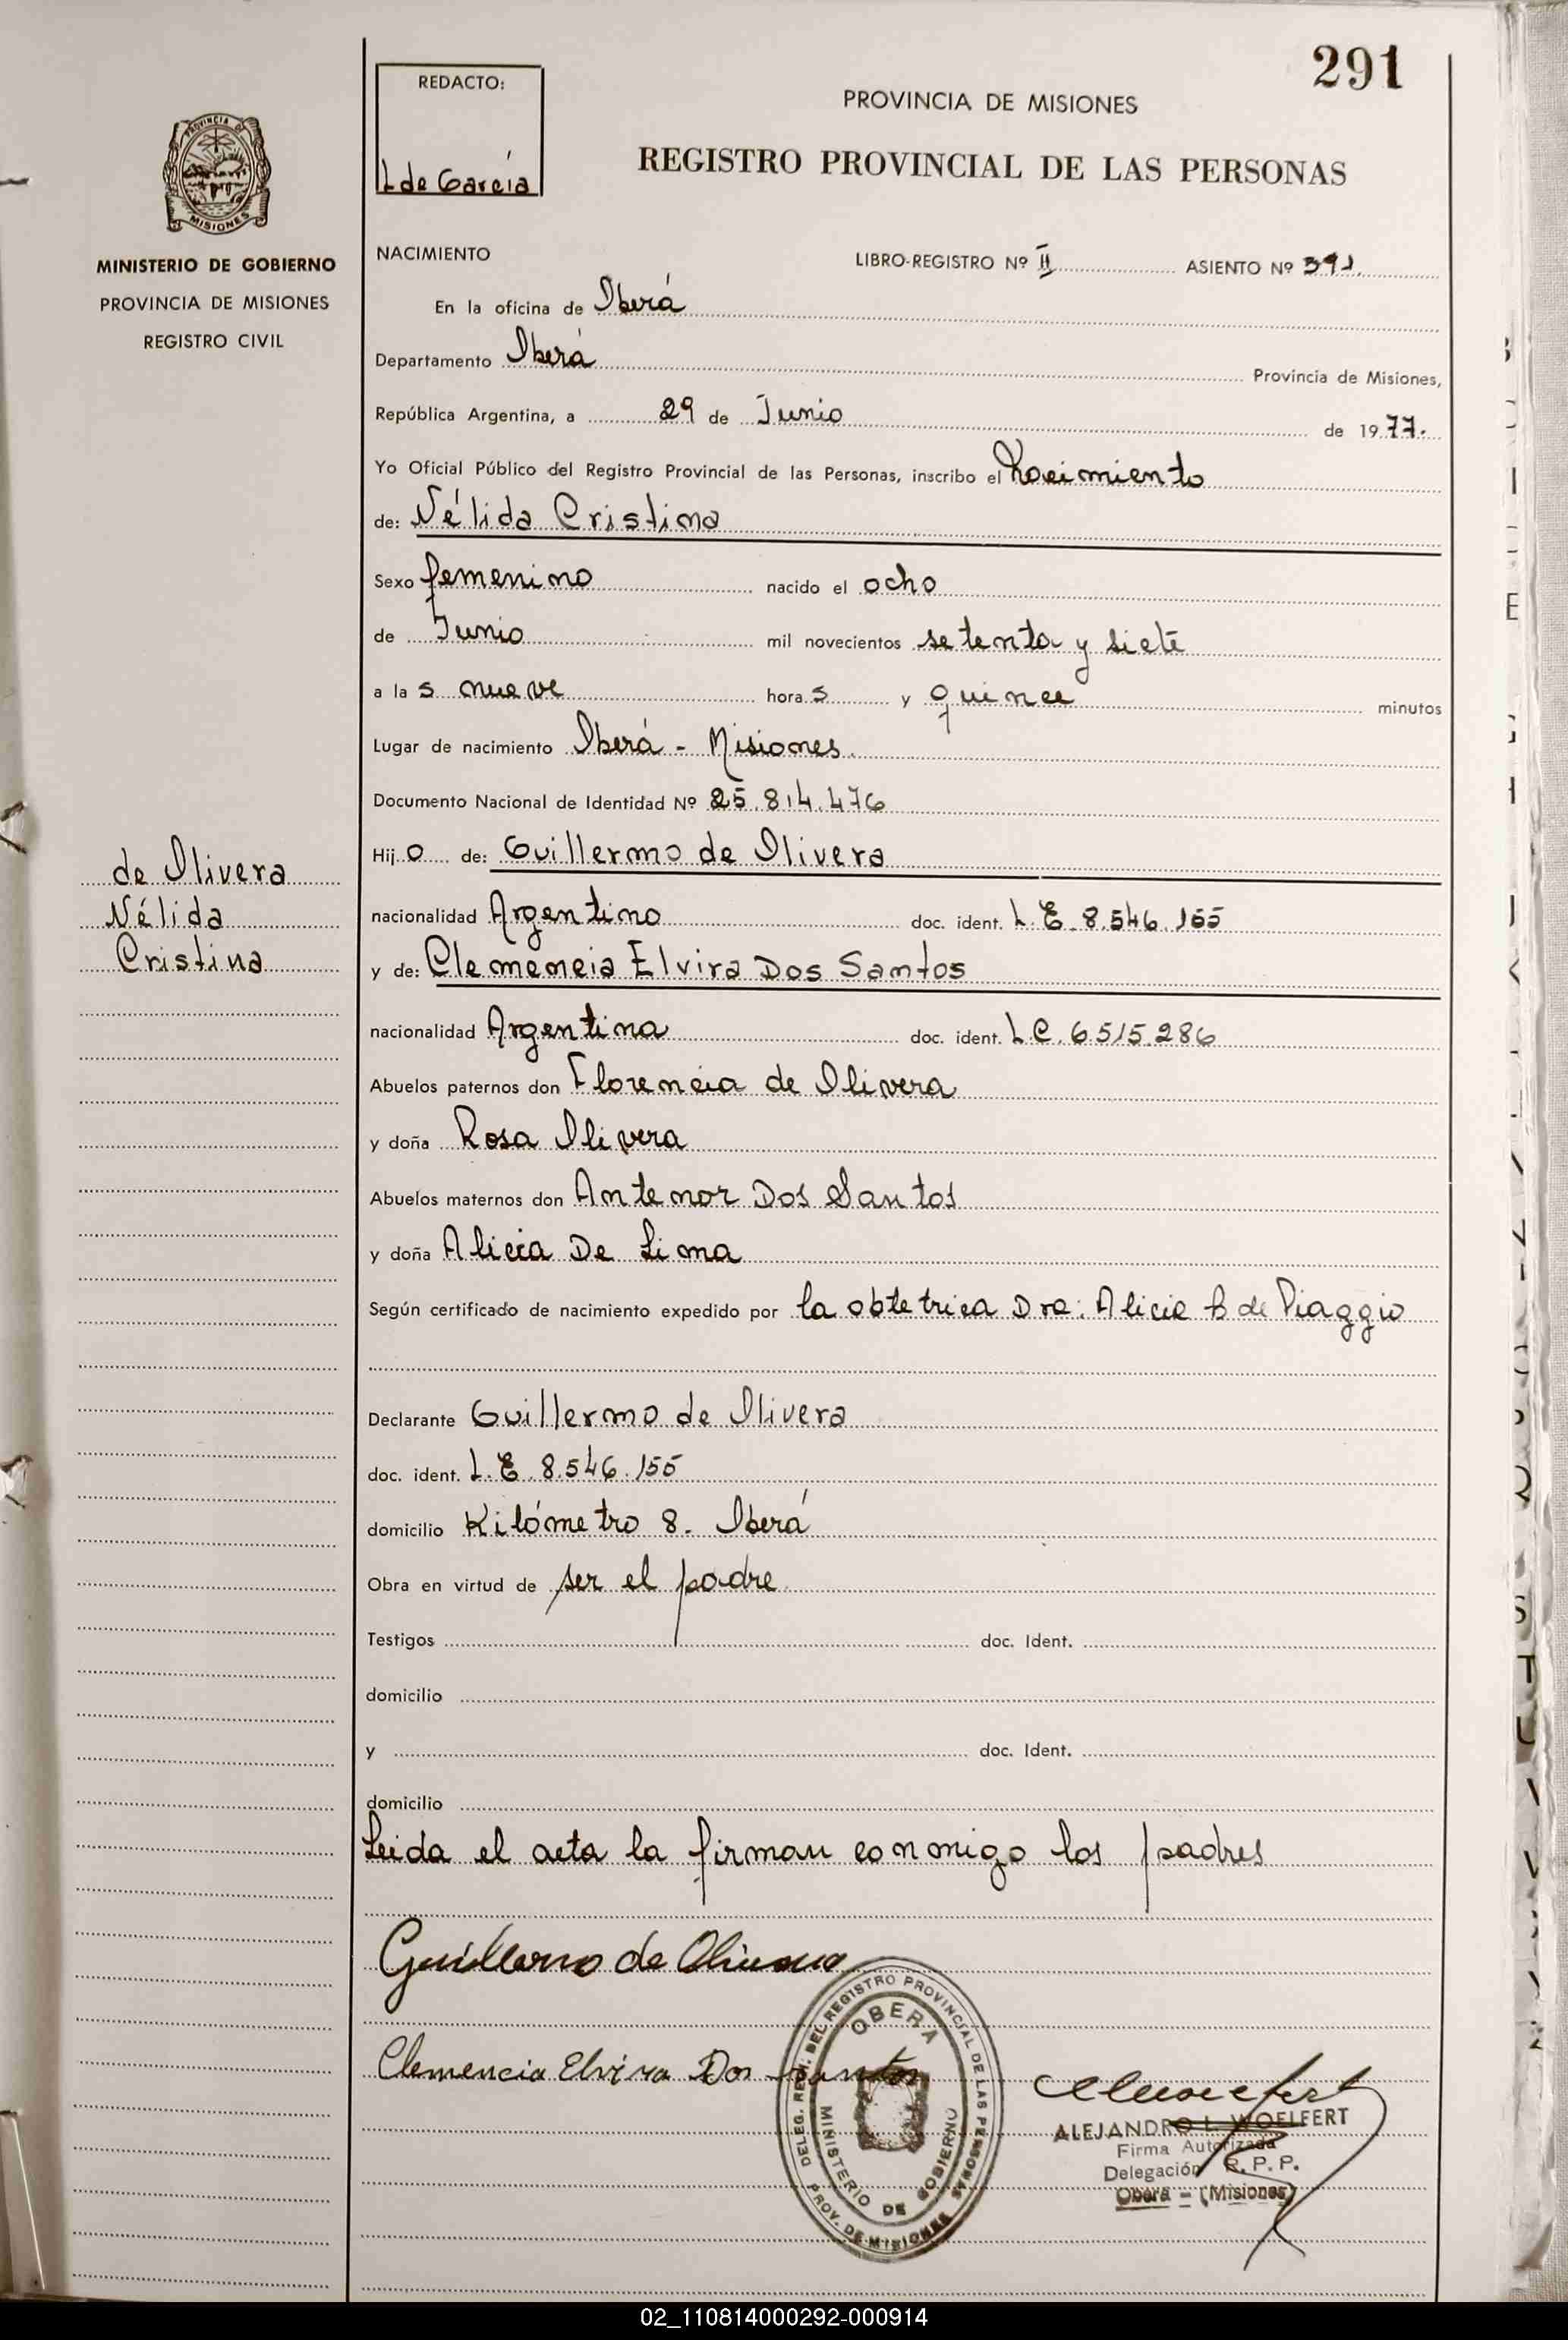 291
REDACTO:
L de García
PROVINCIA DE MISIONES
REGISTRO PROVINCIAL DE LAS PERSONAS
PROVINCIA DE
MISIONES
MINISTERIO DE GOBIERNO
PROVINCIA DE MISIONES
REGISTRO CIVIL
NACIMIENTO LIBRO-REGISTRO Nº II ASIENTO Nº 391
En la oficina de Oberá
Departamento Oberá Provincia de Misiones,
República Argentina, a 29 de Junio de 1977.
Yo Oficial Público del Registro Provincial de las Personas, inscribo el Nacimiento
de: Nélida Cristina
Sexo femenino nacido el ocho
de Junio mil novecientos setenta y siete
a las nueve horas y quince minutos
Lugar de nacimiento Oberá - Misiones.
Documento Nacional de Identidad Nº 25.814.476
Hijo de: Guillermo de Olivera
de Olivera
Nélida
Cristina
nacionalidad Argentino doc. ident. L.E. 8.546.155
y de: Clemencia Elvira Dos Santos
nacionalidad Argentina doc. ident. L.C. 6.515.286
Abuelos paternos don Florencia de Olivera
y doña Rosa Olivera
Abuelos maternos don Antenor Dos Santos
y doña Alicia De Lima
Según certificado de nacimiento expedido por la obtetrica Dra: Alicia B de Piaggio
Declarante Guillermo de Olivera
doc. ident. L.E. 8.546.155
domicilio Kilómetro 8. Oberá
Obra en virtud de ser el padre
Testigos doc. Ident.
domicilio
y doc. Ident.
domicilio
Leida el acta la firman conmigo los padres
Guillermo de Olivera
Clemencia Elvira Dos Santos
DELEG. REG. DEL REGISTRO PROVINCIAL DE LAS PERSONAS
OBERA
MINISTERIO DE GOBIERNO
PROV. DE MISIONES
ALEJANDRO L. WOELFERT
Firma Autorizada
Delegación R.P.P.
Oberá - (Misiones)
02_110814000292-000914